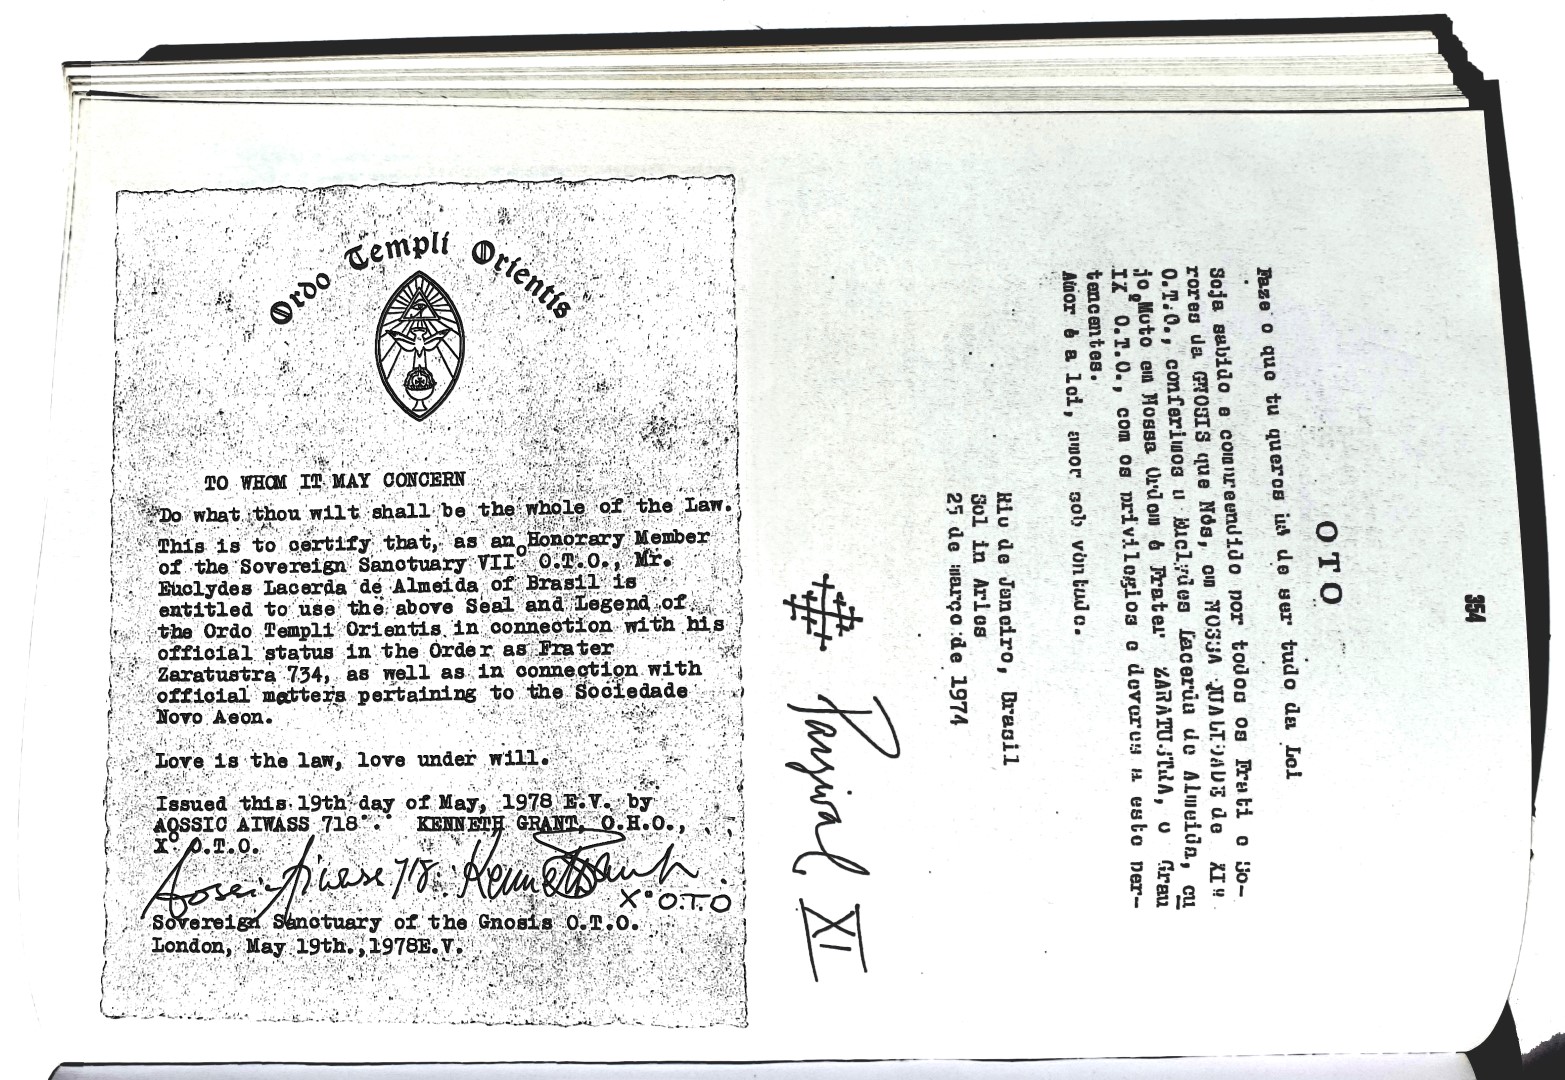 Ordo Templi Orientis
TO WHOM IT MAY CONCERN
Do what thou wilt shall be the whole of the Law.
This is to certify that, as an Honorary Member
of the Sovereign Sanctuary VIIº O.T.O., Mr.
Euclydes Lacerda de Almeida of Brasil is
entitled to use the above Seal and Legend of
the Ordo Templi Orientis in connection with his
official status in the Order as Frater
Zaratustra 734, as well as in connection with
official matters pertaining to the Sociedade
Novo Aeon.
Love is the law, love under will.
Issued this 19th day of May, 1978 E.V. by
AOSSIC AIWASS 718∴ KENNETH GRANT, O.H.O.,
Xº O.T.O.
Aossic Aiwass 718∴ Kenneth Grant
Xº O.T.O
Sovereign Sanctuary of the Gnosis O.T.O.
London, May 19th.,1978E.V.
354
OTO
Faze o que tu queres há de ser tudo da Lei
Seja sabido e compreendido por todos os Frati e So-
rores da GNOSIS que Nós, em NOSSA QUALIDADE de XIº
O.T.O., conferimos a Euclydes Lacerda de Almeida, cu
jo Moto em Nossa Ordem é Frater ZARATUSTRA, o Grau
IXº O.T.O., com os privilegios e deveres a este per-
tencentes.
Amor é a lei, amor sob vontade.
Rio de Janeiro, Brasil
Sol in Aries
25 de março de 1974
Parzival XI